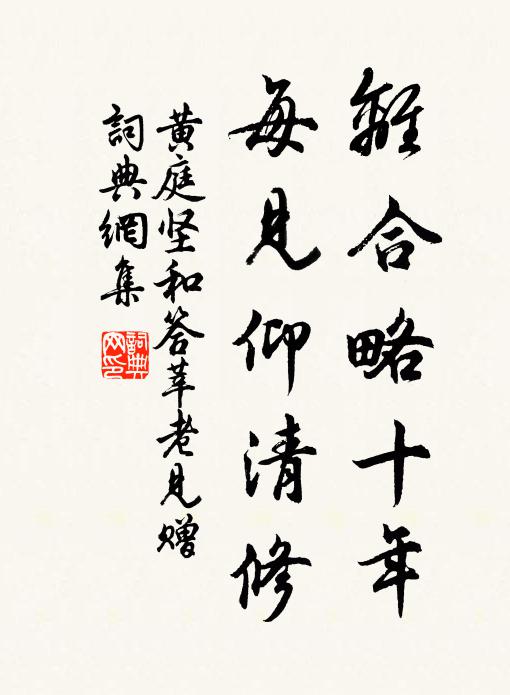 離合略十年
每見仰清修
黃庭坚和答莘老見贈
詞典網集
詞典網印